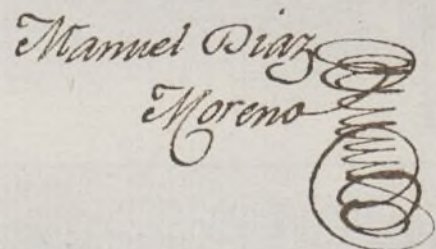 Manuel Diaz
Moreno